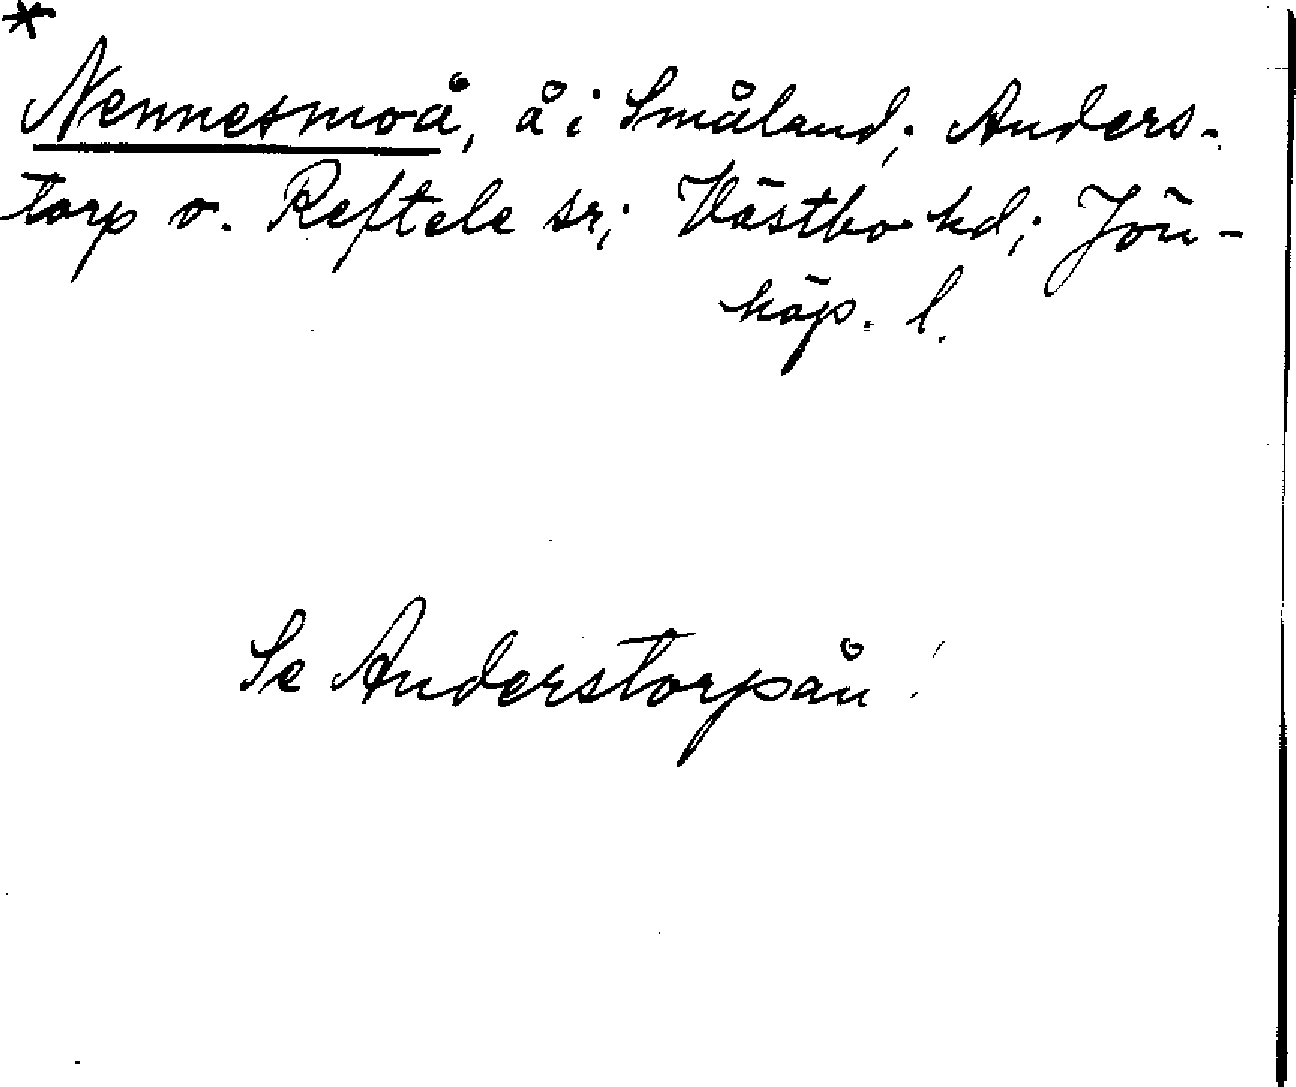 *
Nennesmoå, å i Småland; Anders-
torp o. Reftele sr; Västbo hd; Jön-
köp. l.
Se Anderstorpån!